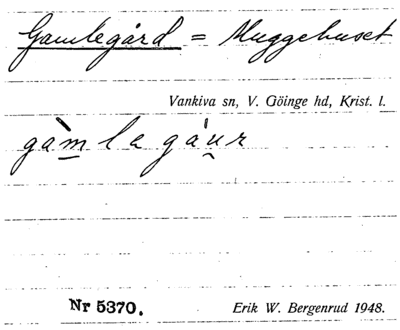 Gamlegård = Muggehuset
Vankiva sn, V. Göinge hd, Krist. l.
gàm̲la gáu̯r
Nr 5370.
Erik W. Bergenrud 1948.